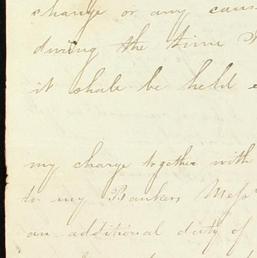 change or any caus
during the time
it shall be held
my charge together with
to my Bankers Mess
an additional duty of